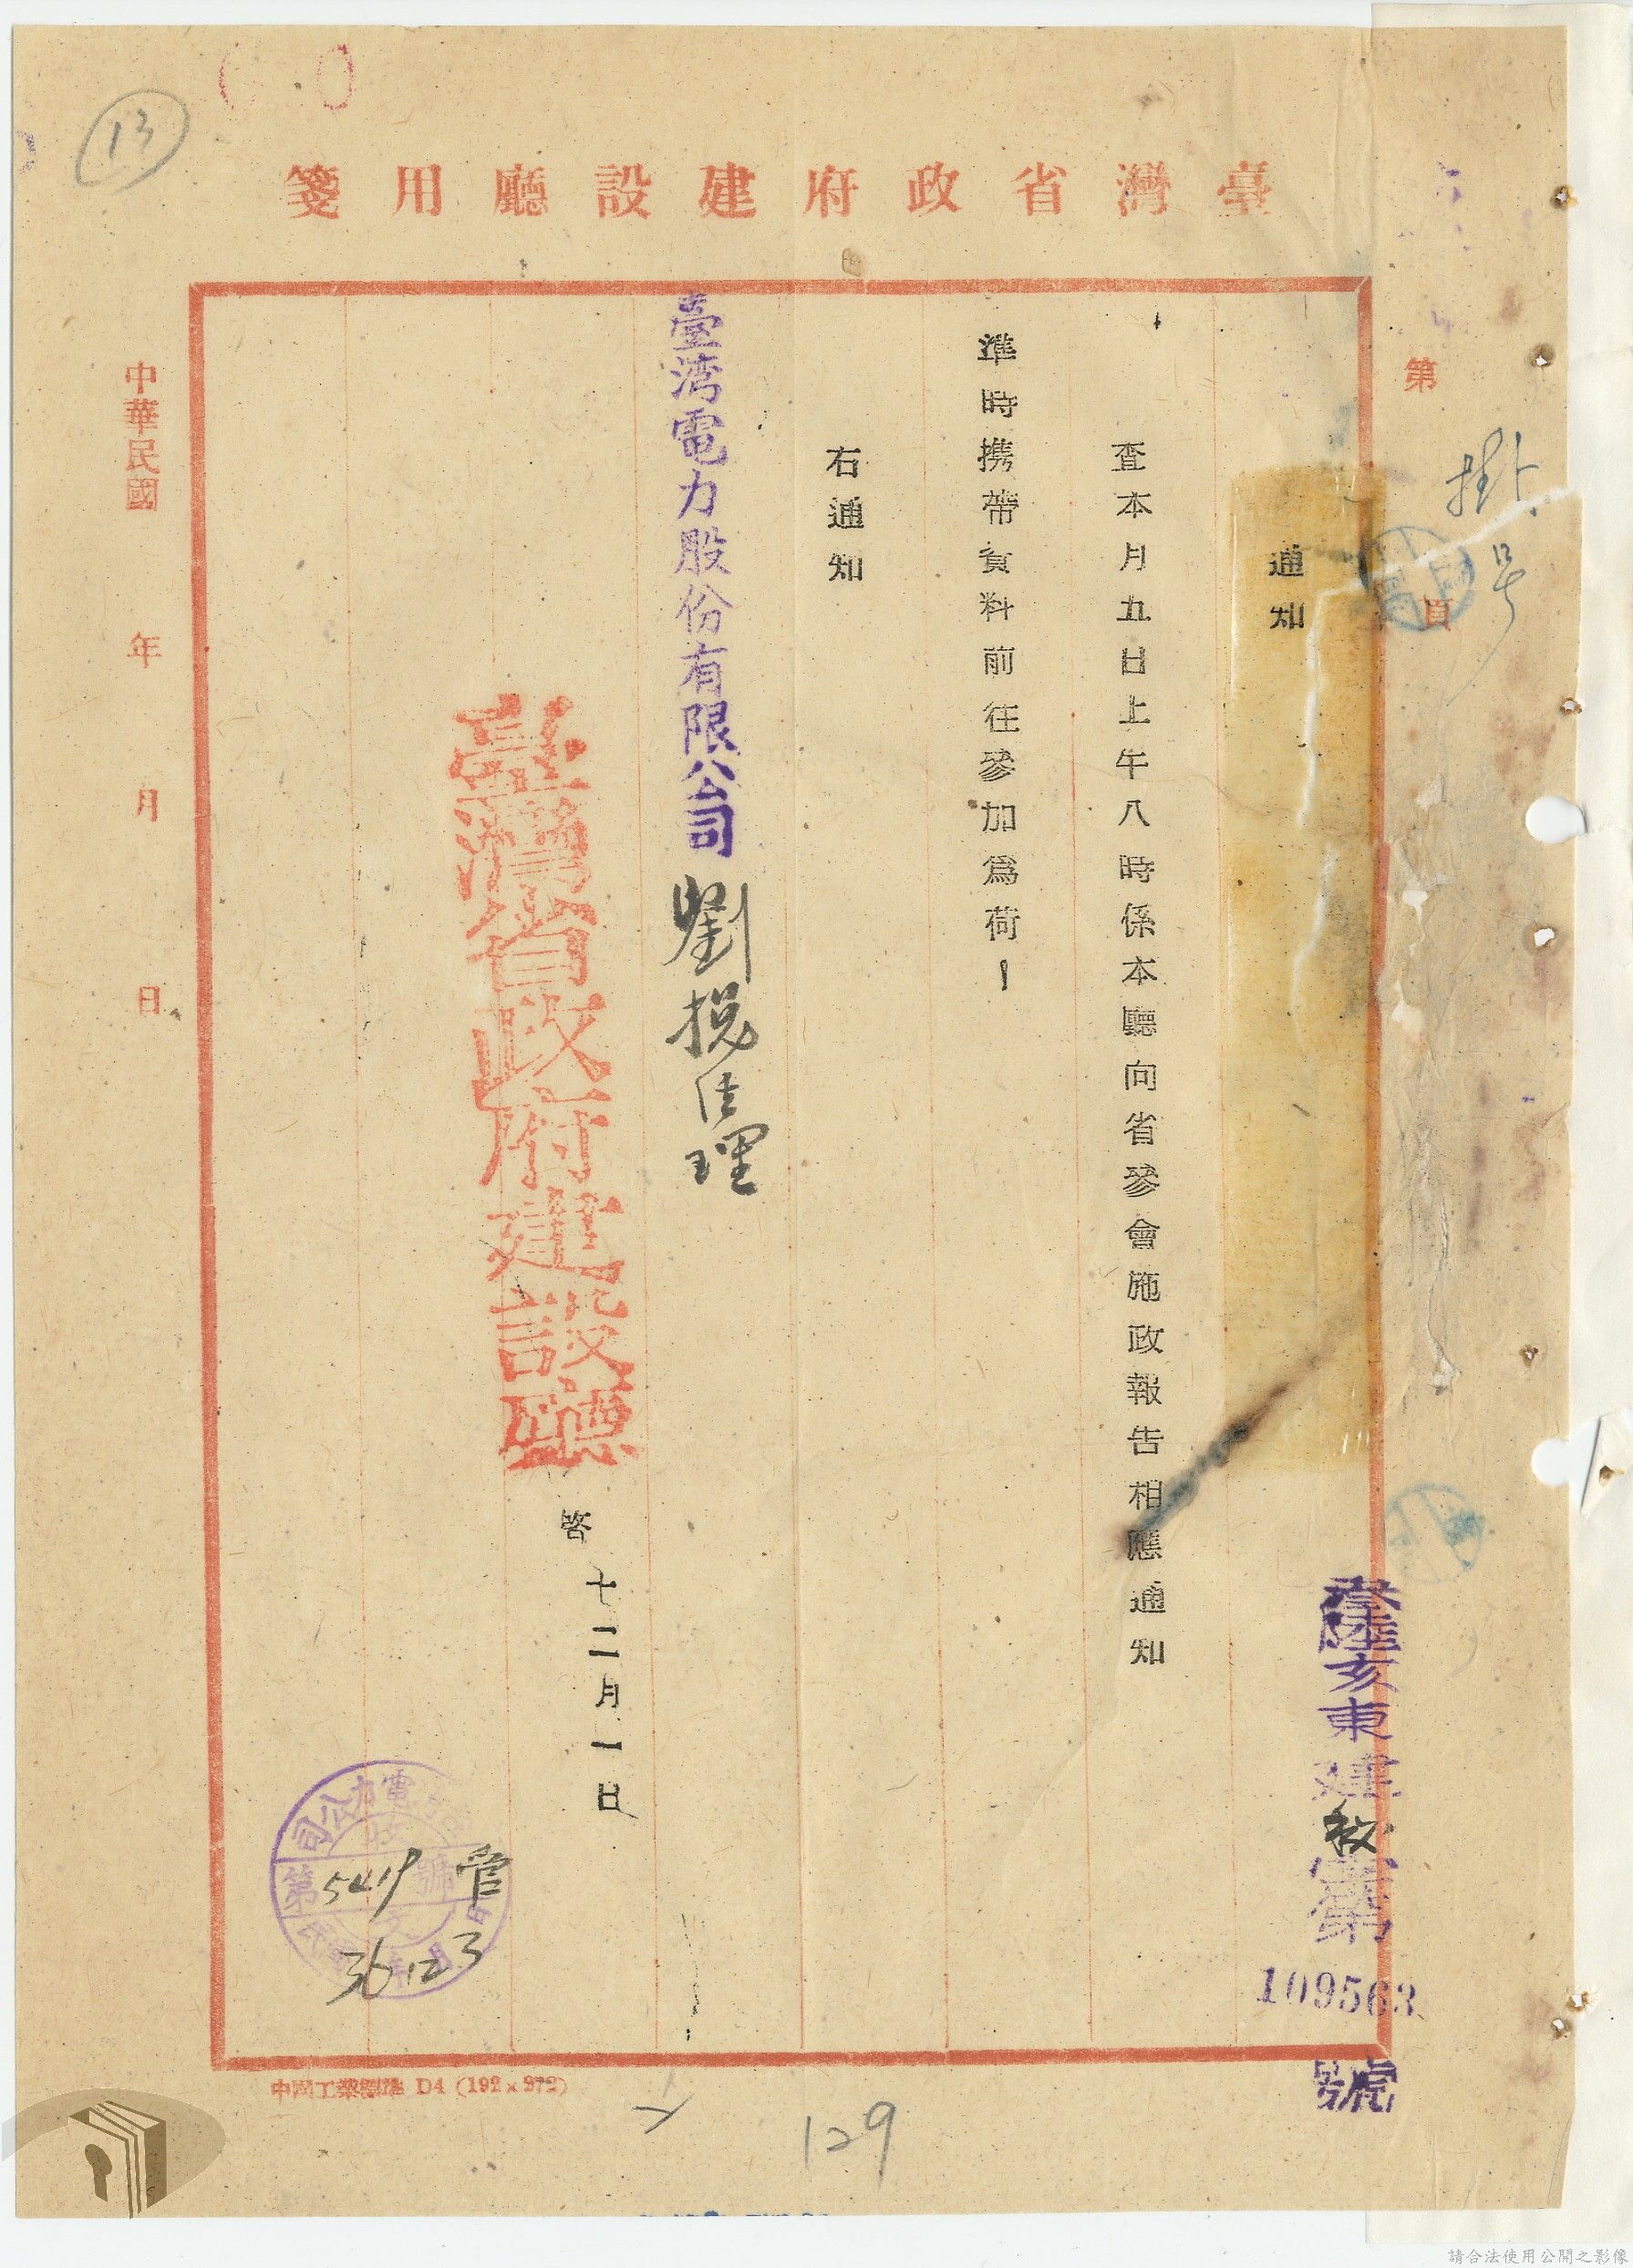 13
臺灣省政府建設廳用箋
第
頁
掛號
通知
查本月九日上午八時係本廳向省參會施政報告相應通知
準時携帶資料前往參加為荷！
右通知
臺湾電力股份有限公司 劉總經理
臺灣省政府建設廳
啓 十二月一日
亥東建秘字第
109563
號
中華民國 年 月 日
電力公司
收
第 5419 號
文
36 12 3
管
中國工業標準 D4 (192×272)
129
請合法使用公開之影像